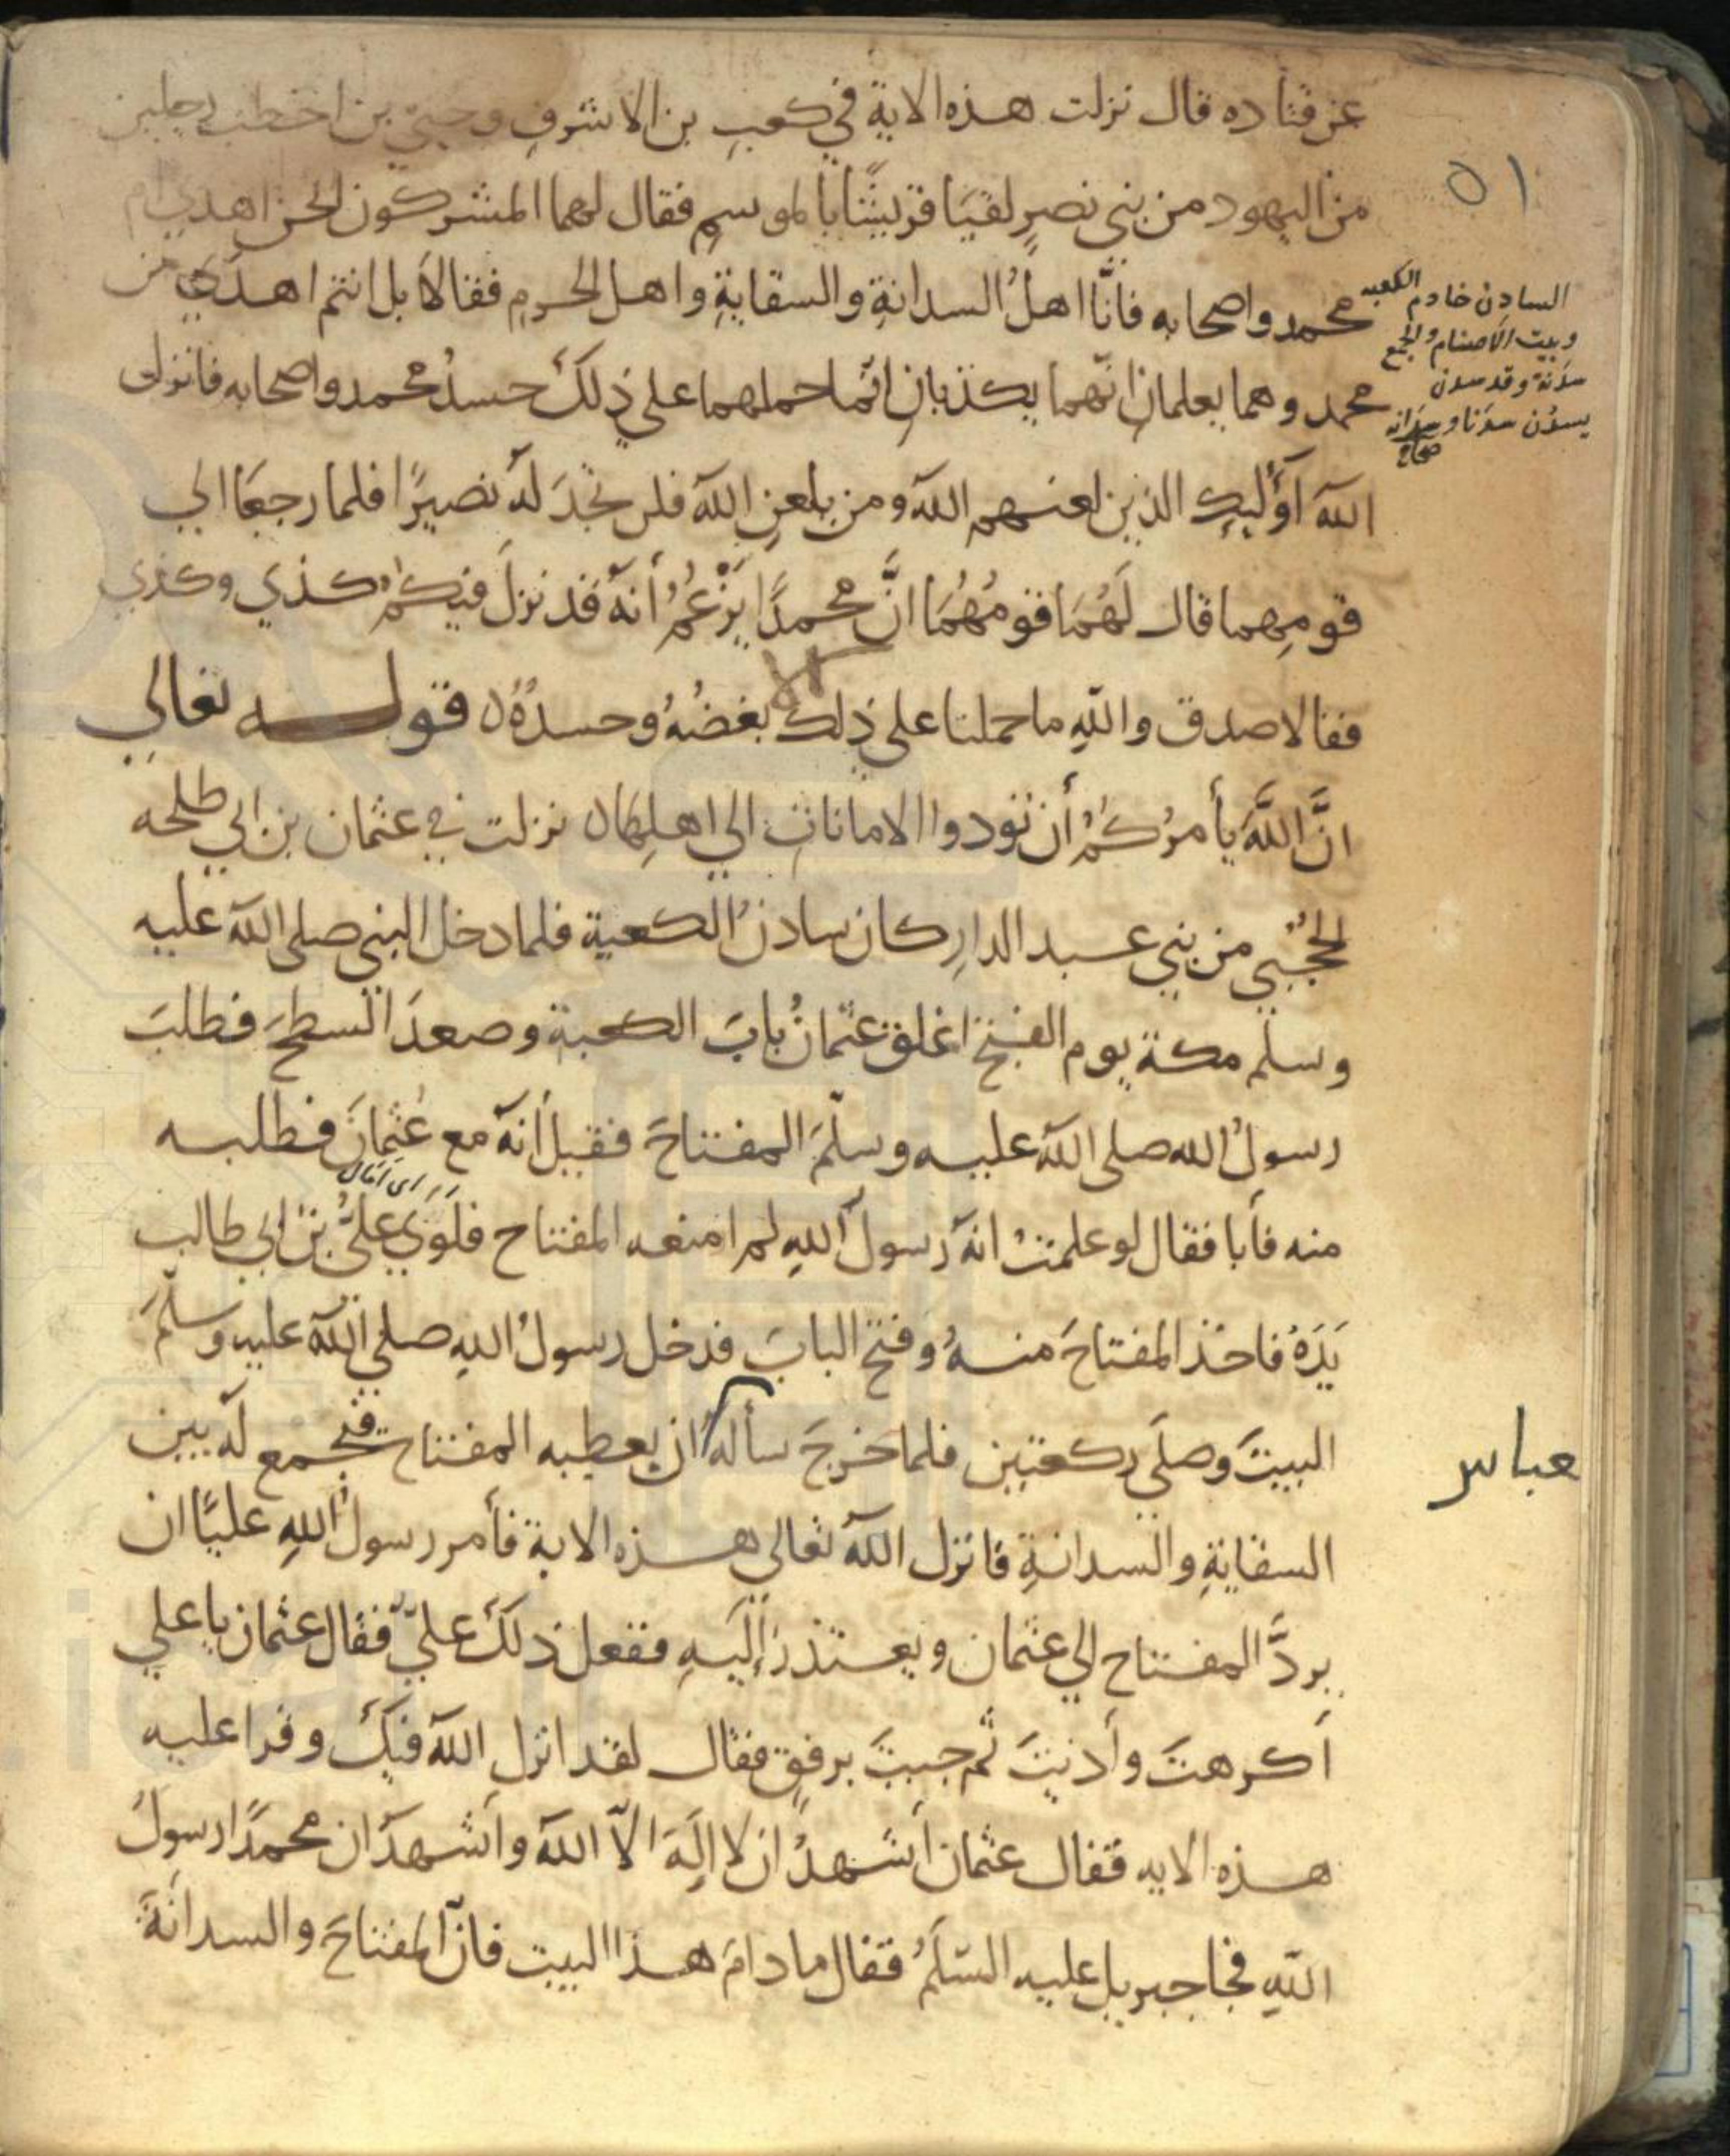 ٥١
عن قتاده قال نزلت هذه الاية في كعبِ بن الاشرفِ وحييّ بن اخطب رجلين
من اليهود من بني نصيرٍ لقيَا قريشًا بالموسمِ فقال لهما المشركون انحن اهدي ام
محمد واصحابه فانَّا اهلُ السدانةِ والسقايةِ واهل الحرمِ فقالا بل انتم اهدَي من
محمد وهما يعلمانِ انّهما يكذبانِ انّما حملهما علي ذلكَ حسدُ محمد واصحابه فانزل
اللهُ اوُليِك الذين لعنهم الله ومن يلعنِ اللهُ فلن تجدَ لهُ نصيرًا فلما رجعَا الي
قومِهما قال لَهُمَا قومُهُمَا انَّ محمدًا يَزْعُمُ أنهُ قد نزلَ فيكمْ كذي وكذي
فقالا صدق واللهِ ما حملنا علي ذلك الا بغضُهُ وحسدُهُ ه قوله تعالي
انَّ اللَّهَ يأمرُكُمْ أن تودوا الاماناتِ الي اهلِها ه نزلت في عثمان بن ابي طلحه
الحُجَبي من بني عبد الدارِ كان سادنُ الكعبة فلما دخل النبي صلي الله عليه
وسلم مكة يوم الفتح اغلق عثمانُ بابَ الكعبة وصعدَ السطحَ فطلبَ
رسولُ الله صلي الله عليه وسلّمَ المفتاحَ فقيل أنهُ مع عُثمانَ فطلبه
اى امال
منه فأبا فقال لو علمتُ انهُ رسولُ اللهِ لم امنعه المفتاح فلَوَي عليُّ بن ابي طالب
يَدَهُ فاخذ المفتاحَ منهُ وفتح البابَ فدخل رسولُ اللهِ صلي اللهُ عليه وسلّمَ
البيتَ وصلَي ركعتين فلما خرجَ سألهُ ان يعطيه المفتاح فيجمع لهُ بين
عباس
السقايةِ والسدانةِ فانزل اللهُ تعالي هذه الاية فأمر رسولُ اللهِ عليًّا ان
يردَّ المفتاح الي عثمان ويعتذرَ إليَهِ ففعل ذلكَ عليّ فقال عثمان يا علي
أكرهتَ وأذيتَ ثم جيتَ برفقٍ فقال لقد انزل اللهُ فيكَ وقرا عليه
هذه الايه فقال عثمان أشهدُ ان لا الهَ الاّ اللهُ وأشهدُ ان محمدًا رسولُ
اللهِ فجا جبريل عليه السّلَمُ فقال ما دامَ هذا البيت فانّ المفتاحَ والسدانةَ
السادن خادم الكعبه
وبيت الاصنام والجمع
سدنة وقد سدن
يسدُن سدنا وسدانه
صحاح